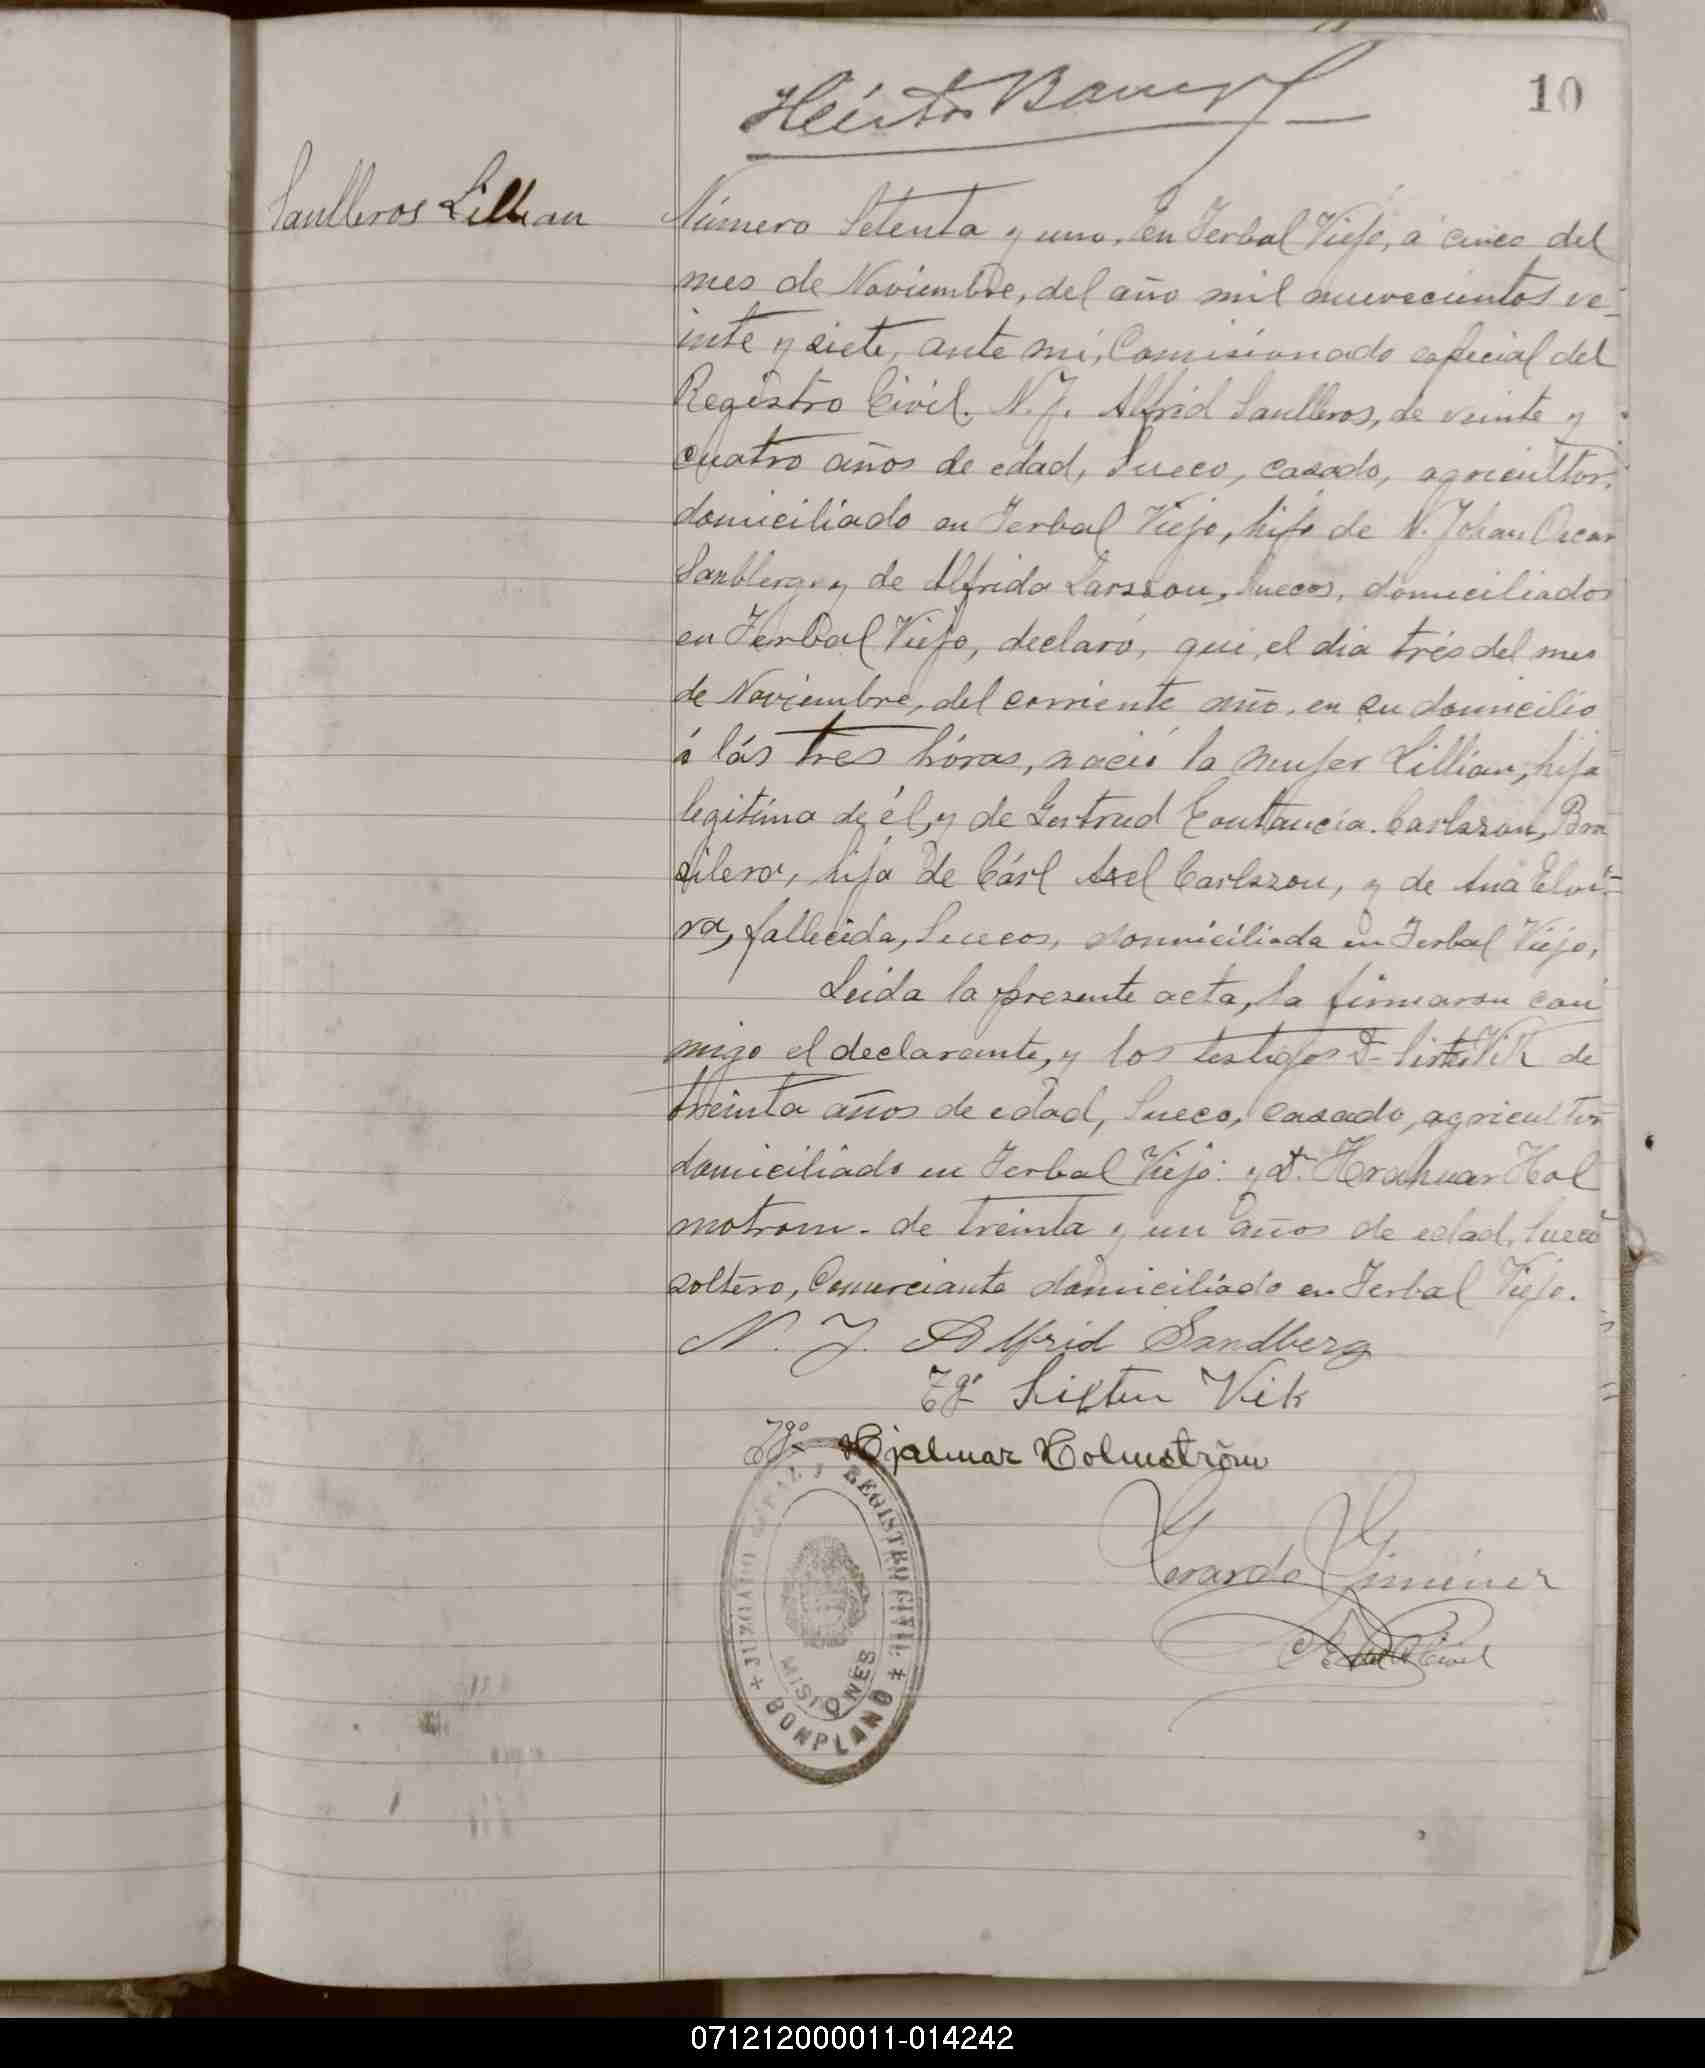 10
Héctor
Saulleros Lillian
Número Setenta y uno. En Yerbal Viejo, á cinco del
mes de Noviembre, del año mil nuevecientos ve-
inte y siete, ante mi, Comisionado especial del
Registro Civil. N. J. Alfrid Saulleros, de veinte y
cuatro años de edad, Sueco, casado, agricultor,
domiciliado en Yerbal Viejo, hijo de N. Johan Oscar
Sanblerg. y de Alfrida Larsson, Suecos, domiciliados
en Yerbal Viejo, declaró, que, el dia trés del mes
de Noviembre, del corriente año, en su domicilio
á lás tres hóras, nació la mujer Lillian, hija
legitima de él, y de Gertrud Contancia. Carlsson, Bra
silera, hija de Cárl Axel Carlszon, y de Ana Elvi-
ra, fallecida, Suecos, domiciliada en Yerbal Viejo,
Leida la presente acta, la firmaron con
migo el declarante, y los testigos D- Sixten Vik de
treinta años de edad, Sueco, casado, agricultor
domiciliado en Yerbal Viejo: y D. Hol
motrom - de treinta y un años de edad, Sueco
soltero, Comerciante domiciliado en Yerbal Viejo.
N. J. Alfrid Sandberg
Tgº Sixten Vik
Tgo Hjalmar Holmström
Gerardo Gimenez
JUZGADO DE PAZ Y REGISTRO CIVIL
MISIONES
BONPLAND
071212000011-014242